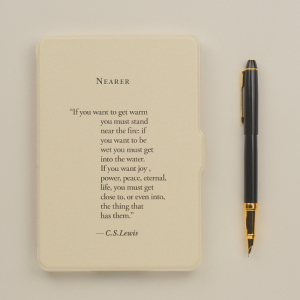 NEARER
“If you want to get warm
you must stand
near the fire: if
you want to be
wet you must get
into the water.
If you want joy ,
power, peace, eternal,
life, you must get
close to, or even into,
the thing that
has them.”
— C.S.Lewis